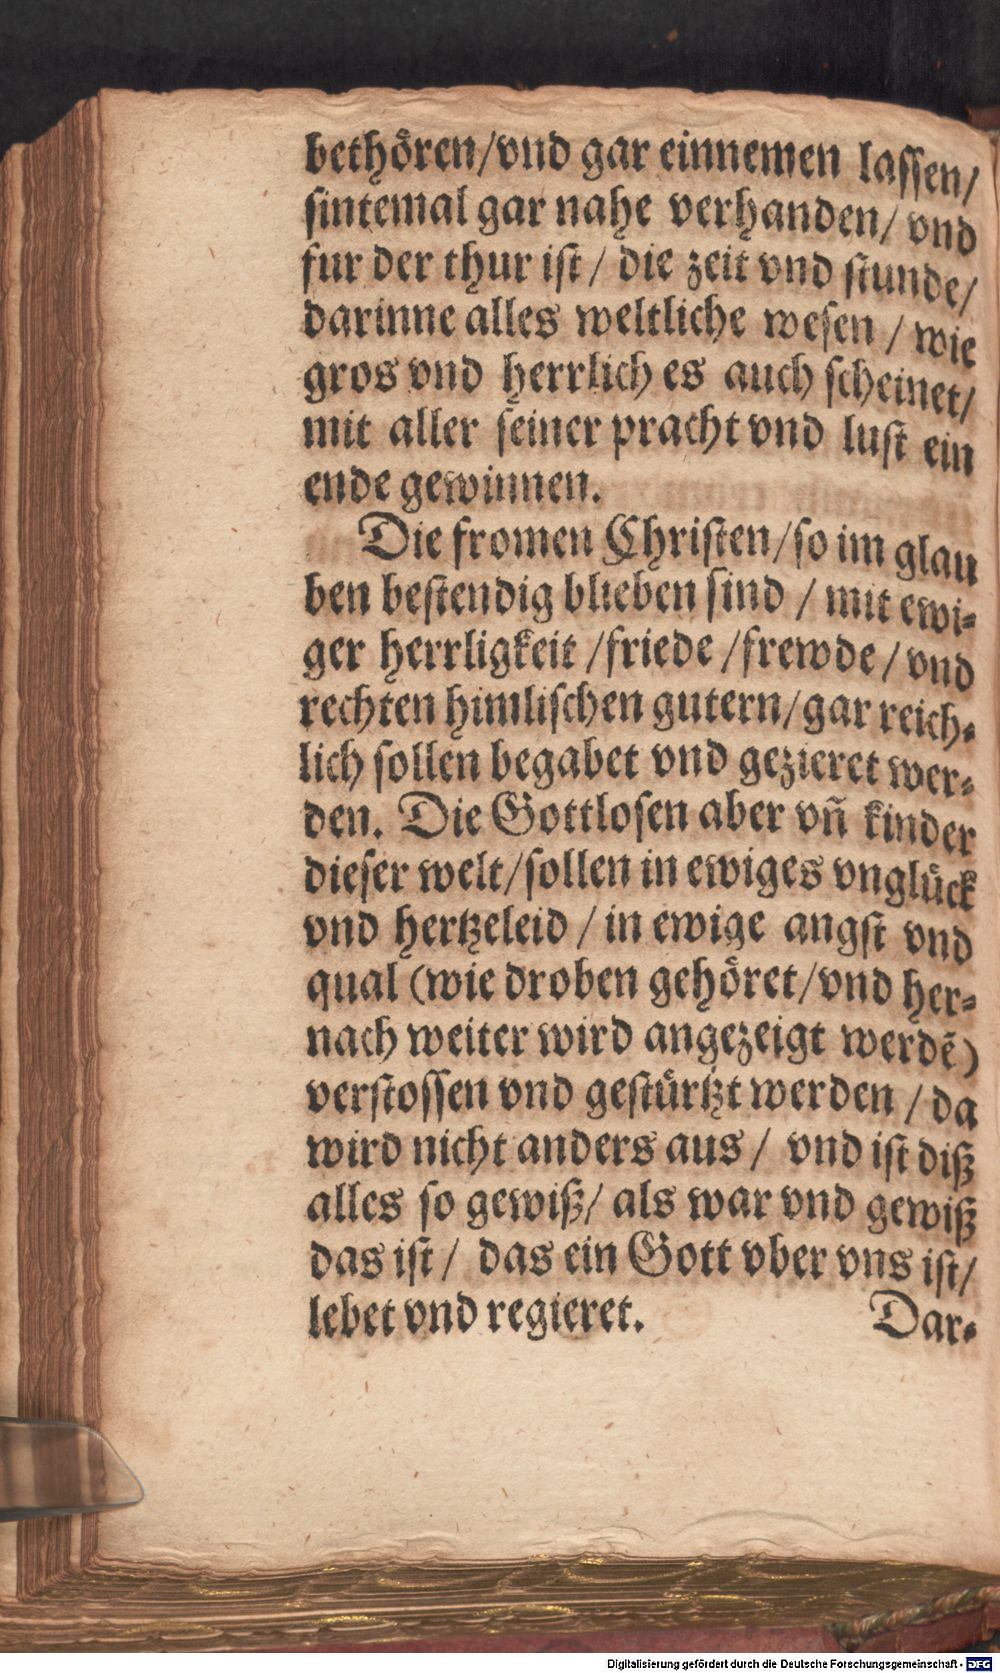 bethören/vnd gar einnemen lassen/
sintemal gar nahe verhanden/ vnd
fur der thur ist / die zeit vnd stunde/
darinne alles weltliche wesen / wie
gros vnd herrlich es auch scheinet/
mit aller seiner pracht vnd lust ein
ende gewinnen.
Die fromen Christen/so im glau
ben bestendig blieben sind / mit ewi-
ger herrligkeit /friede /frewde / vnd
rechten himlischen gutern/gar reich-
lich sollen begabet vnd gezieret wer-
den. Die Gottlosen aber vñ kinder
dieser welt/sollen in ewiges vnglück
vnd hertzeleid / in ewige angst vnd
qual (wie droben gehöret/vnd her-
nach weiter wird angezeigt werdẽ)
verstossen vnd gestürtzt werden / da
wird nicht anders aus / vnd ist diß
alles so gewiß/ als war vnd gewiß
das ist / das ein Gott vber vns ist/
lebet vnd regieret. Dar-
Digitalisierung gefördert durch die Deutsche Forschungsgemeinschaft - DFG